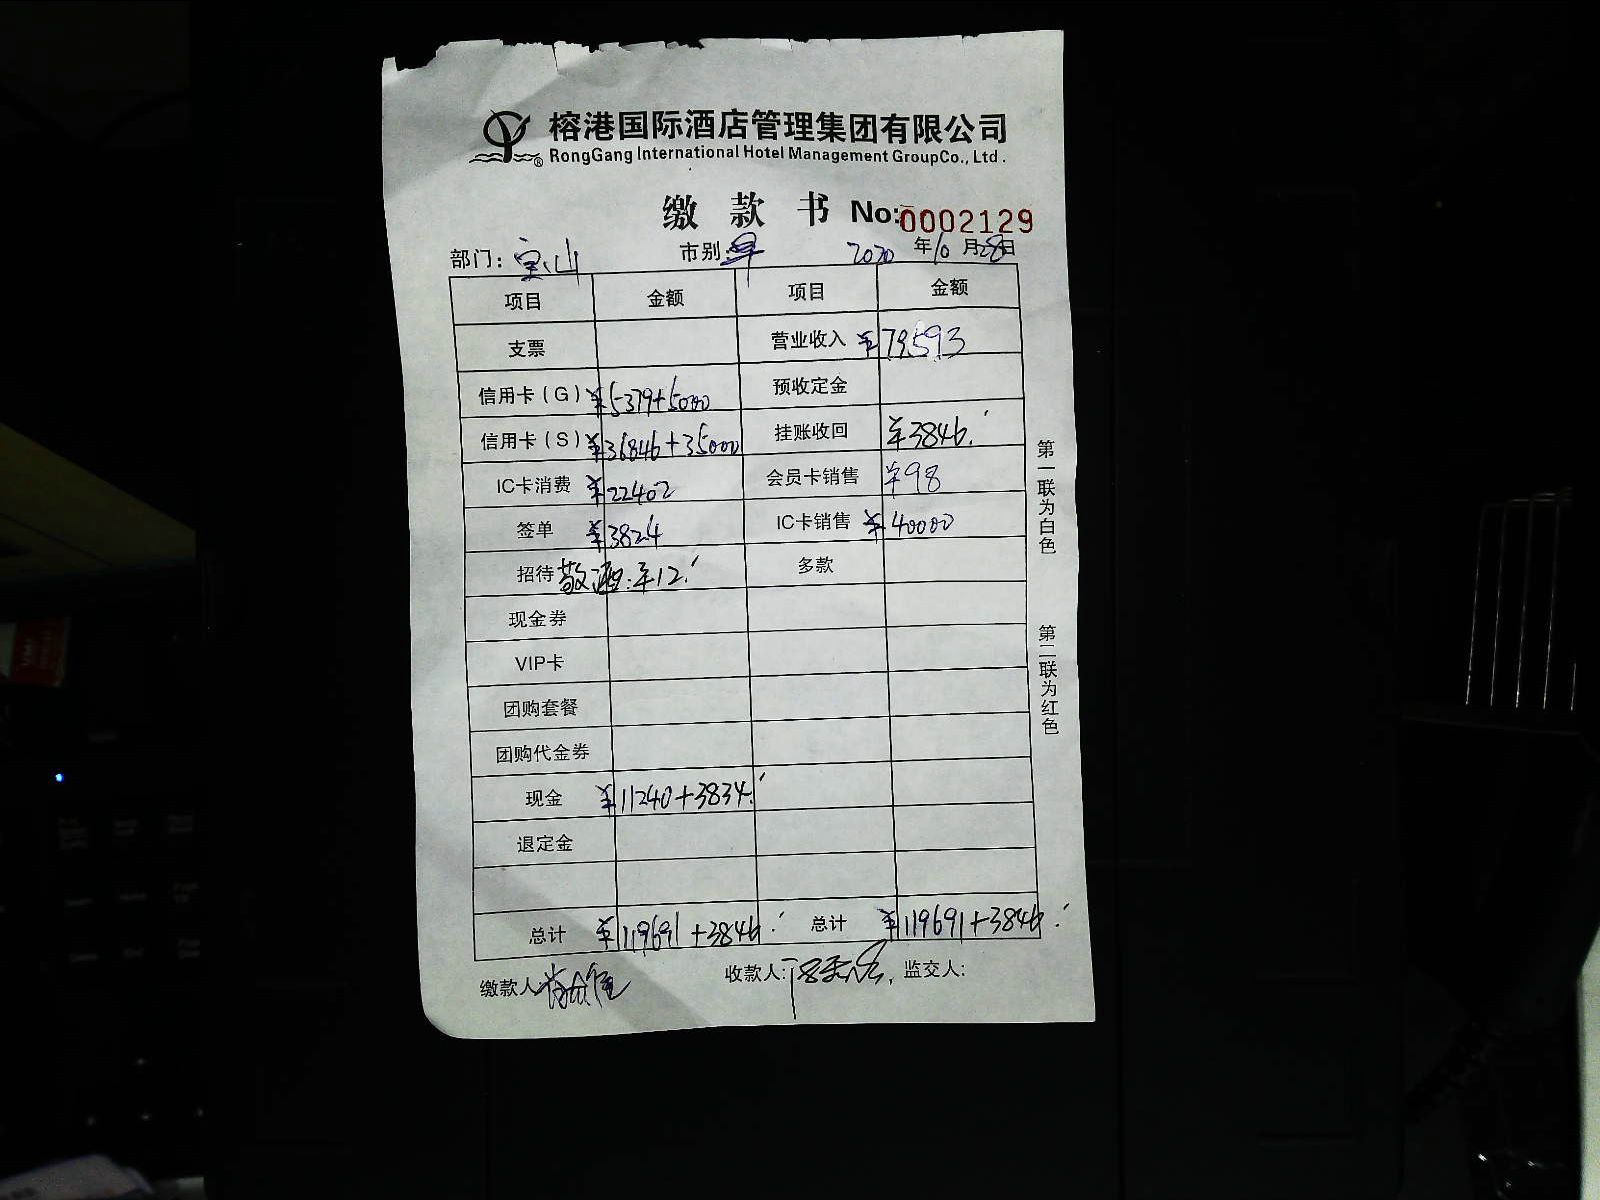 榕港国际酒店管理集团有限公司
RongGang International Hotel Management GroupCo., Ltd.
缴款书 No:0002129
部门：宝山 市别：早 2020年10月28日
项目 金额 项目 金额
支票 营业收入 ¥79593
信用卡（G） ¥5379+5000 预收定金
信用卡（S） ¥36846+35000 挂账收回 ¥3846.
IC卡消费 ¥22402 会员卡销售 ¥98
签单 ¥3824 IC卡销售 ¥40000
招待 敬酒:¥12. 多款
现金券
VIP卡
团购套餐
团购代金券
现金 ¥11240+3834.
退定金
总计 ¥119691+3846. 总计 ¥119691+3846.
缴款人 收款人: 监交人:
第一联为白色
第二联为红色